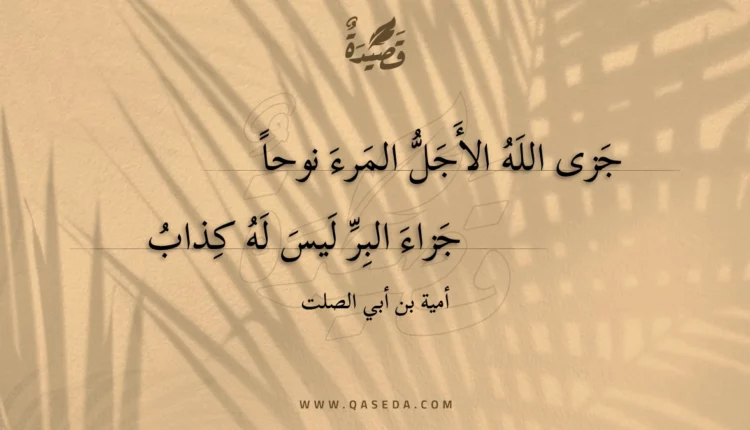 قَصِيدَةٌ
جَزى اللَهُ الأَجَلُّ المَرءَ نوحاً
جَزاءَ البِرِّ لَيسَ لَهُ كِذابُ
أمية بن أبي الصلت
WWW.QASEDA.COM